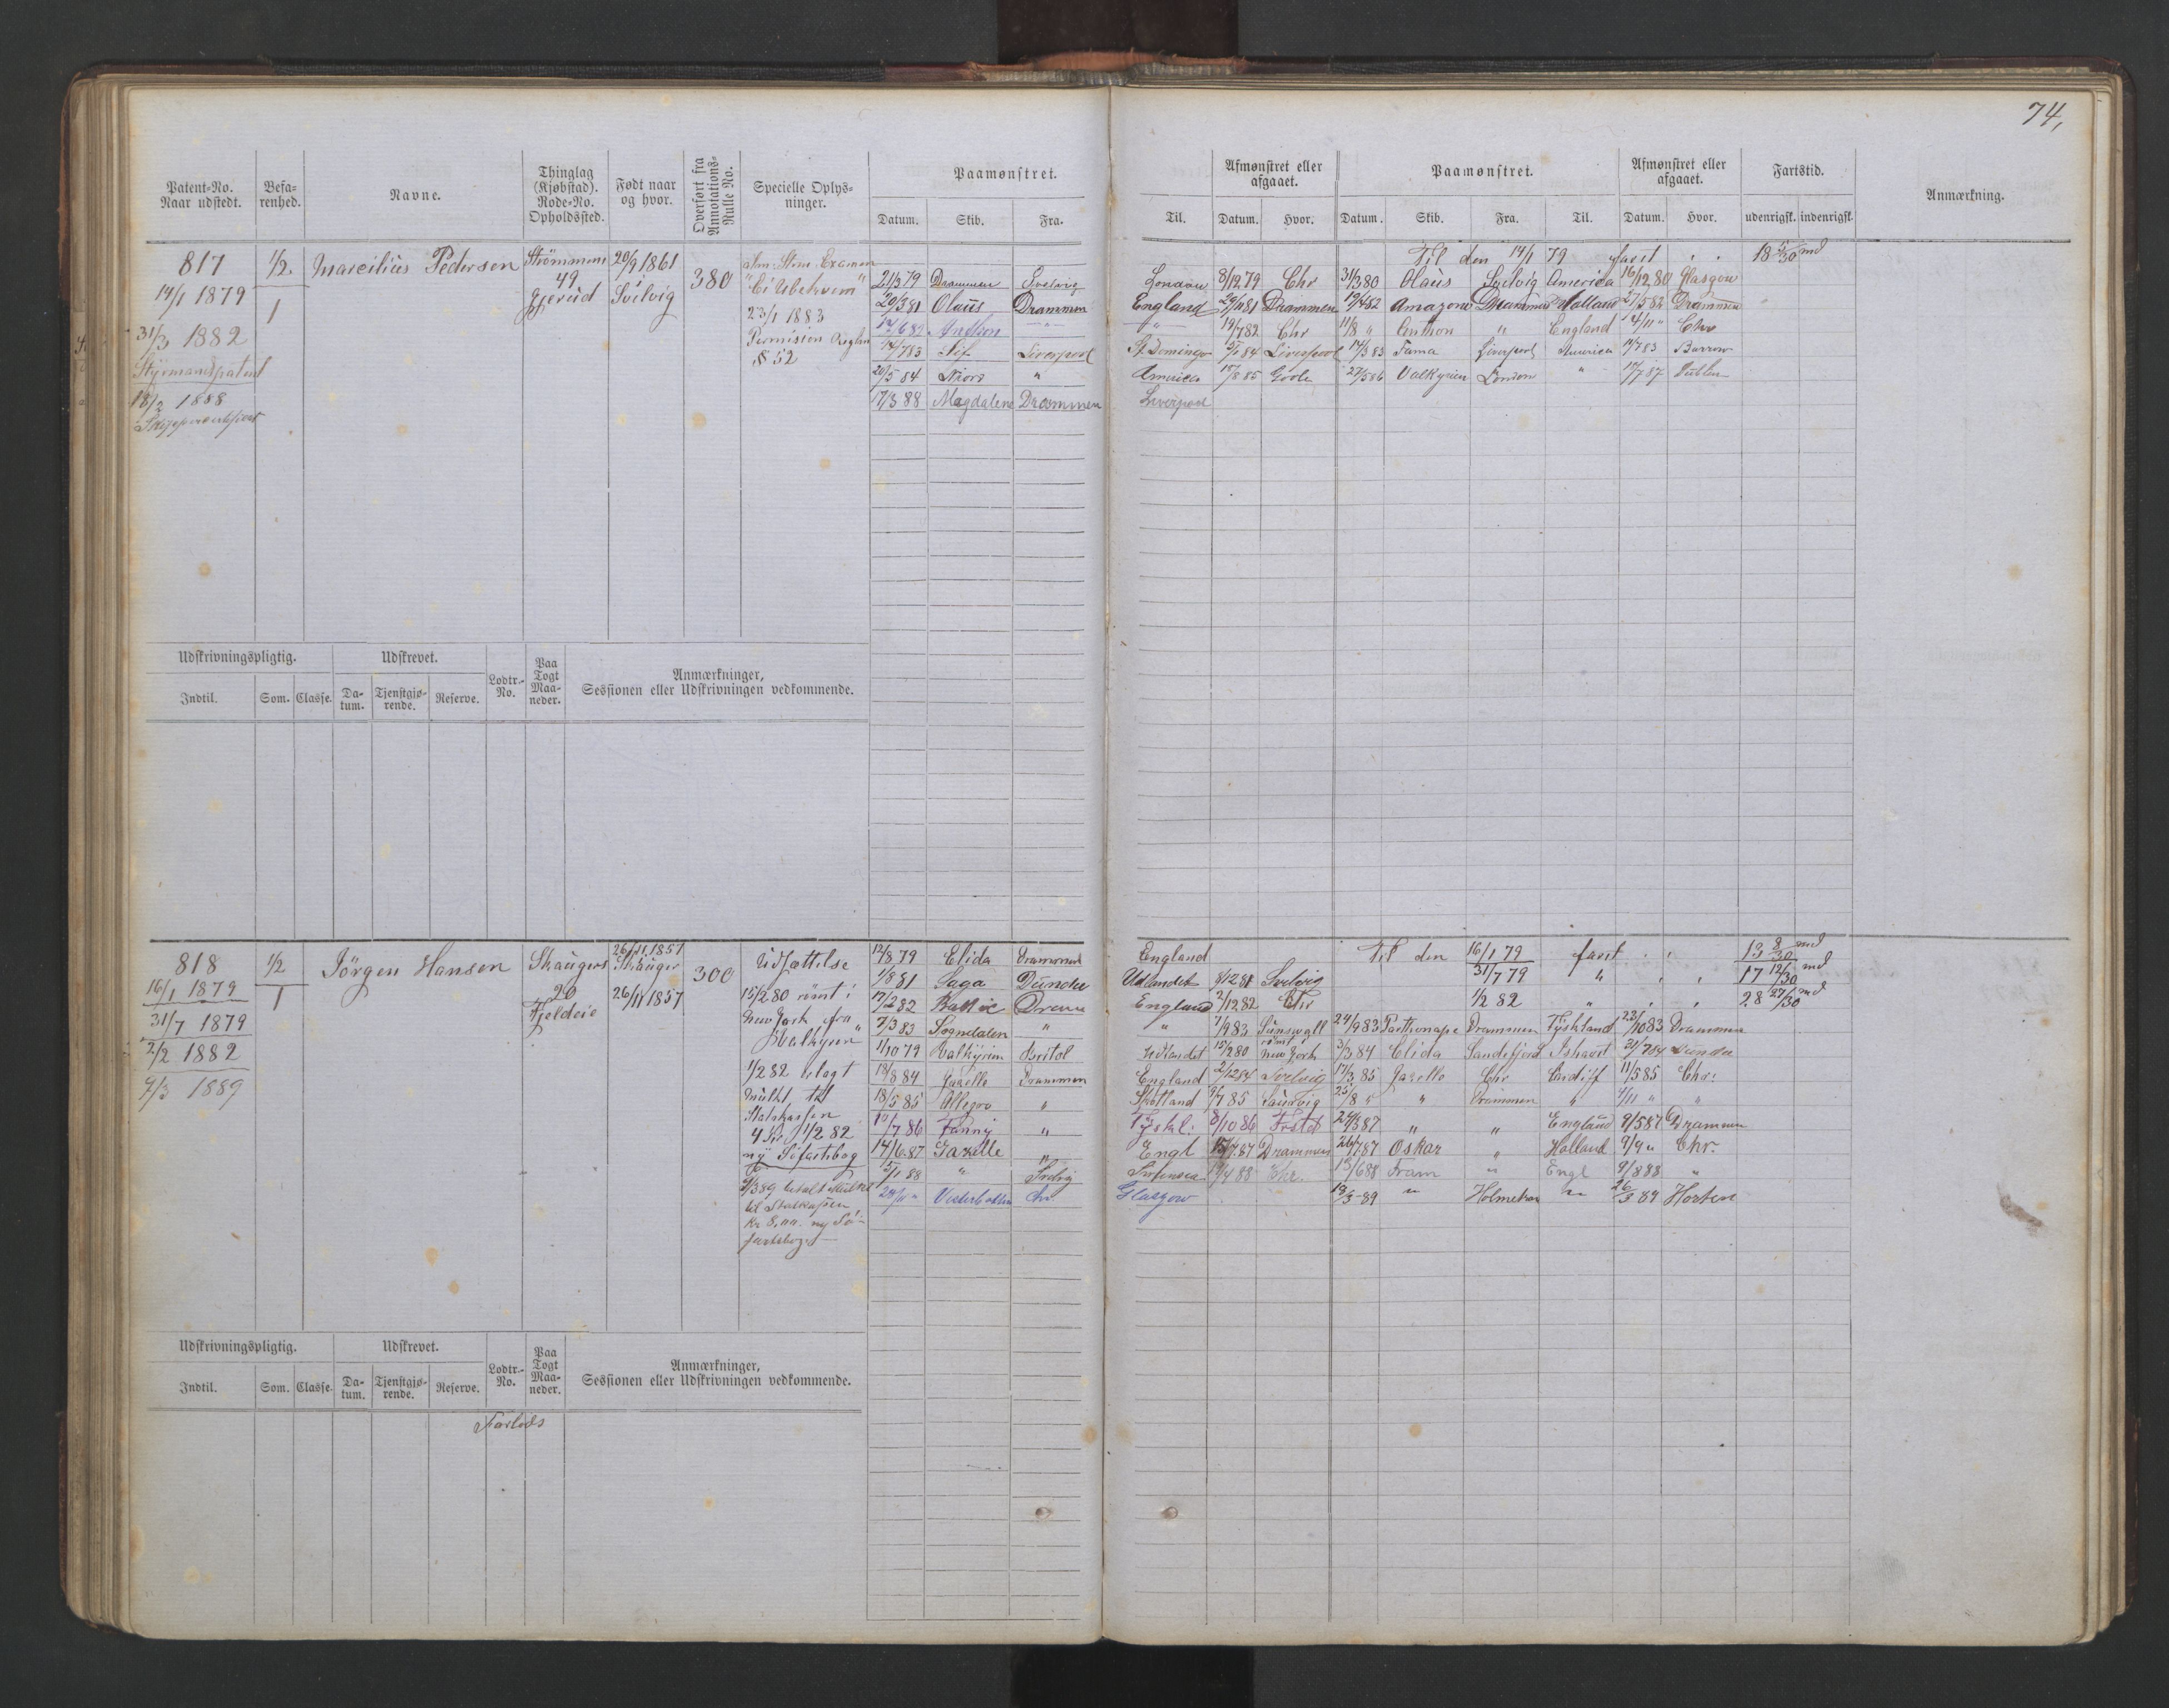 74,
Patent-No. Naar udstedt.
Befarenhed.
Navne.
Thinglag (Kjøbstad). Rode-No. Opholdssted.
Født naar og hvor.
Overført fra Annotations-Rulle No.
Specielle Oplysninger.
Paamønstret.
Datum. Skib. Fra.
Til.
Afmønstret eller afgaaet.
Datum. Hvor.
Paamønstret.
Datum. Skib. Fra. Til.
Afmønstret eller afgaaet.
Datum. Hvor.
Fartstid.
udenrigsk. indenrigsk.
Anmærkning.
817
14/1 1879
31/3 1882
Styrmandspatent
18/2 1888
1/2.
1
Marcilius Pedersen
Strømmens
49
Gjerud
20/9 1861
Svelvig
380
23/1 1883
Permision Regln
§ 52
21/3 79 Drammen Svelvig
20/3 81 Olaus Drammen
14/6 82 Anthon "
14/7 83 Sif Liverpool
20/5 84 Niord "
17/3 88 Magdalene Drammen
Til den 14/1 79 fart " " 18 5/30 md
London 8/12 79 Chr 31/3 80 Olaus Svelvig America 16/12 80 Glasgow
England 29/11 81 Drammen 19/4 82 Amazone Drammen Holland 27/5 82 Drammen
" 19/7 82 Chr 11/8 " Anthon " England 4/11 " Chr
St. Domingo 9/1 84 Liverpool 14/3 83 Fama Liverpool America 14/7 83 Barrow
America 18/8 85 Goole 27/5 86 Valkyrien London " 18/7 87 Dublin
Liverpool
Udskrivningspligtig.
Udskrevet.
Lodtr.-No.
Paa Togt Maaneder.
Anmærkninger,
Sessionen eller Udskrivningen vedkommende.
Indtil. Som. Classe. Datum. Tjenstgjørende. Reserve.
818
16/1 1879
31/7 1879
2/2 1882
9/3 1889
1/2
1
Jörgen Hansen
Skaugers
20
Fjeldeie
26/11 1857
Skauger
26/11 1857
300
Udsættelse
15/2 80 römt i
New York fra
"Valkyrien"
1/2 82 ilagt
mulkt til
Statskassen
4 Kr. 1/2 82
ny Söfartsbog
9/3 89 betalt Mulkt
til Statskassen
Kr 8,00. ny Sö-
fartsbog.
12/8 79 Elida Drammen
1/8 81 Saga Dundee
17/2 82 Baltic Dramn
7/3 83 Sogndalen "
1/10 79 Valkyrien Bristol
18/8 84 Gazelle Drammen
18/5 85 Allegro "
14/7 86 Fanny "
14/6 87 Gazelle "
15/1 88 " Svelvig
28/11 " Vesterbotten Chr
England Til den 16/1 79 fart " " 13 8/30 md
Udlandet 8/12 81 Svelvig 31/7 79 " " " 17 12/30 md
England 2/12 82 Chr 1/2 82 " " " 28 27/30 md
" 7/9 83 Sunswall 24/9 83 Parthenope Drammen Tyskland 23/10 83 Drammen
Udlandet 15/2 80 römt i New York 3/3 84 Elida Sandefjord Ishavet 31/7 84 Dundee
England 2/12 84 Svelvig 17/3 85 Gazelle Chr Cardiff 11/5 85 Chr:
Skotland 9/7 85 Laurvig 25/8 " " Drammen " 4/11 " "
Tyskl: 8/10 86 Frstd 24/3 87 " " England 9/5 87 Drammen
Engl 15/7 87 Drammen 26/7 87 Oskar " Holland 9/9 " Chr.
Swansea 19/4 88 Chr. 13/6 88 Fram " Engl 9/8 88 "
Glasgow 12/3 89 " Holmestran " 26/3 89 Horten
Udskrivningspligtig.
Udskrevet.
Lodtr.-No.
Paa Togt Maaneder.
Anmærkninger,
Sessionen eller Udskrivningen vedkommende.
Indtil. Som. Classe. Datum. Tjenstgjørende. Reserve.